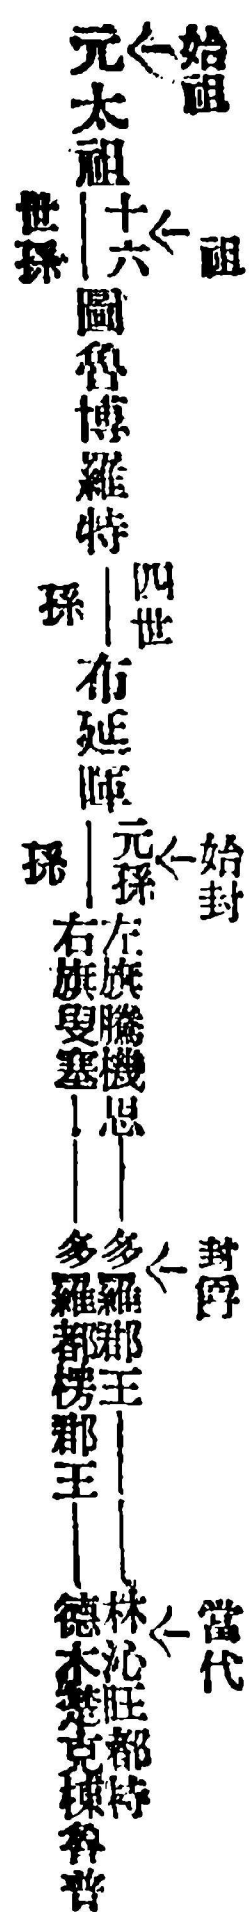 始祖
元太祖
祖
十六
世孫
圖魯博羅特
四世
孫
布延
始封
元孫
孫
左旗騰機思
右旗叟塞
封爵
多羅郡王
多羅都楞郡王
當代
林沁旺都特
德木楚克棟魯普